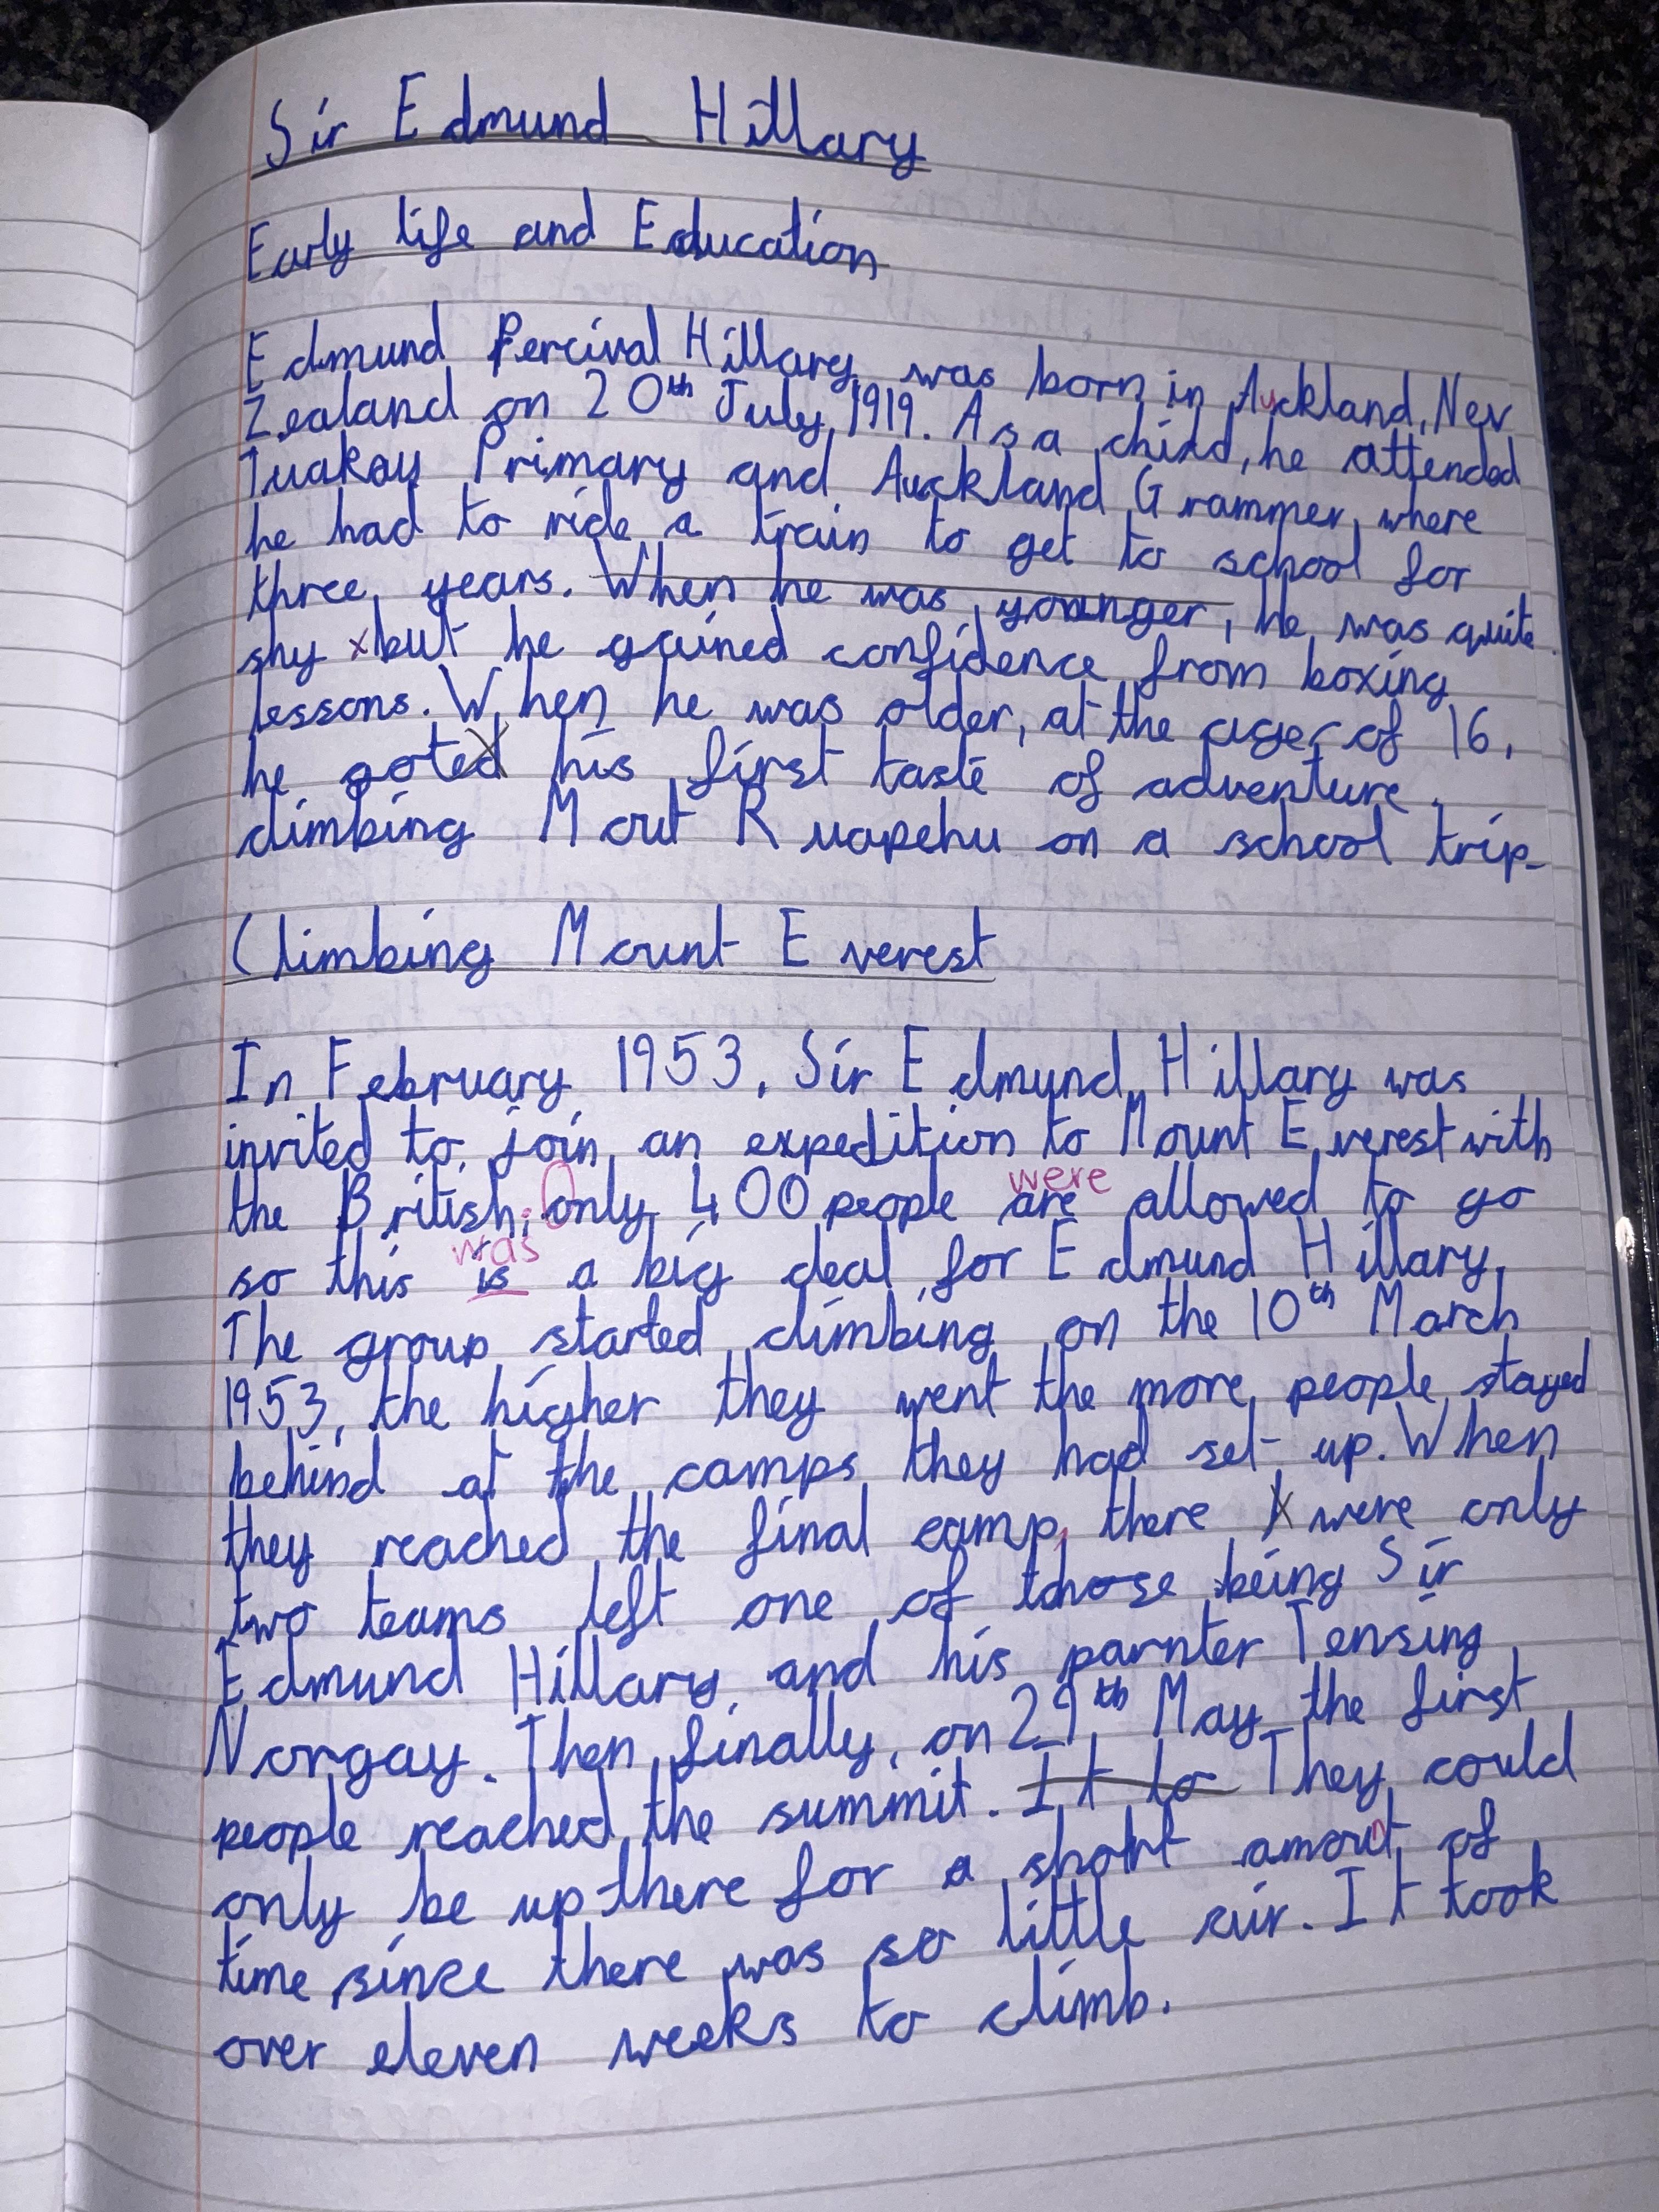 Sir Edmund Hillary
Early life and Education
Edmund Percival Hillary was born in Auckland, New
Zealand on 20th July, 1919. As a child, he attended
Tuakau Primary and Auckland Grammer, where
he had to ride a train to get to school for
three years. When he was younger, he was quite
shy but he gained confidence from boxing
lessons. When he was older, at the age of 16,
he goted his first taste of adventure
climbing Mout Ruapehu on a school trip.
Climbing Mount Everest
In February 1953, Sir Edmund Hillary was
invited to join an expedition to Mount Everest with
were
the British. Only 400 people are allowed to go
was
so this is a big deal for Edmund Hillary.
The group started climbing on the 10th March
1953, the higher they went the more people stayed
behind at the camps they had set up. When
they reached the final camp, there were only
two teams left one of those being Sir
Edmund Hillary and his parnter Tensing
Norgay. Then finally, on 29th May the first
people reached the summit. It to They could
only be up there for a short amount of
time since there was so little air. It took
over eleven weeks to climb.